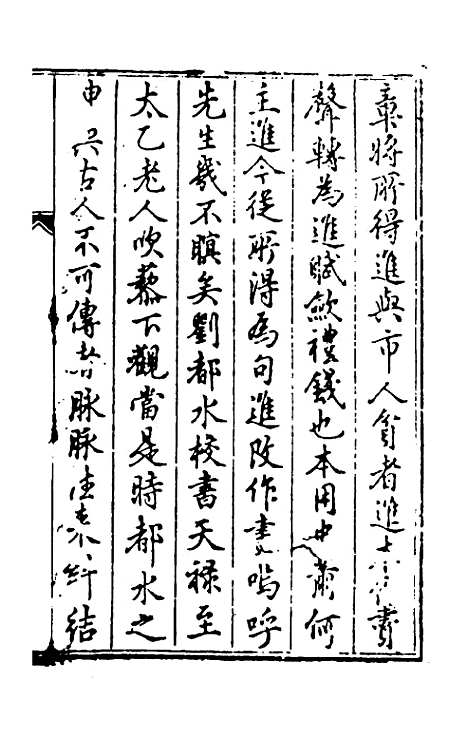 橐將所得進與市人貧者進
聲轉為進賦斂禮錢也本用中蕭何
主進今從所得為句進改作書嗚呼
先生幾不瞑矣劉都水校書天祿至
太乙老人吹藜下觀當是時都水之
申古人不可傳者脉脉往來糾結